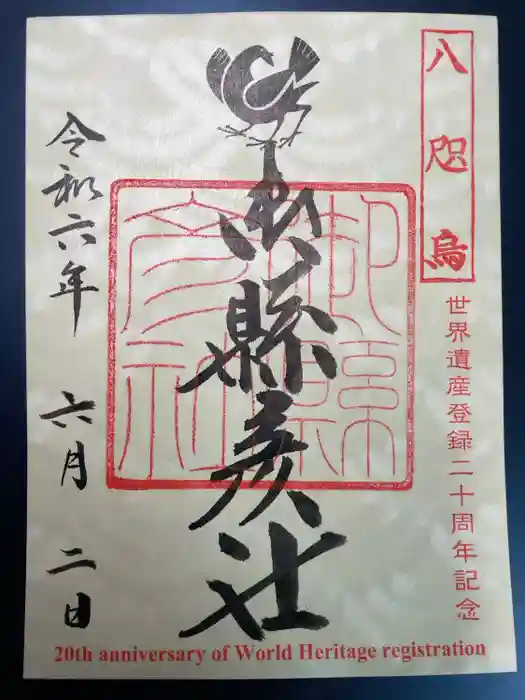 八咫烏
世界遺産登録二十周年記念
御縣彦社
御縣彦社
令和六年 六月 二日
20th anniversary of World Heritage registration